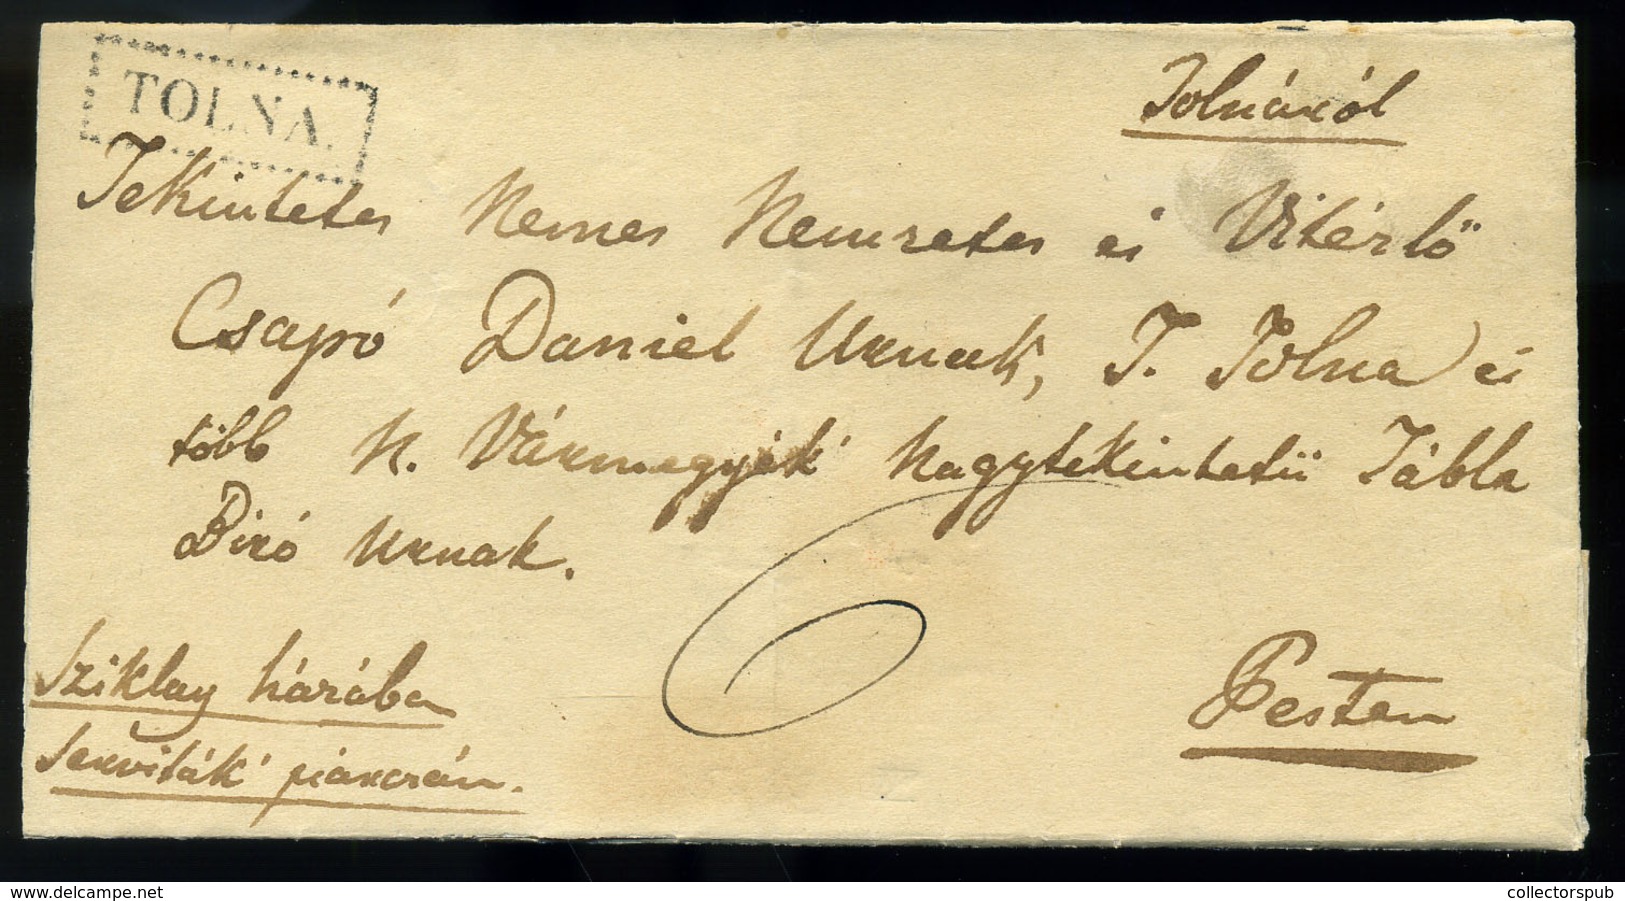 TOLNA.
Tolnáról
Tekintetes Nemes Nemzetes és Vitézlő
Csapó Daniel Urnak, T. Tolna és
több N. Vármegyék' Nagytekintetü Tábla
Biró Urnak.
Sziklay házába
Serviták' piarczán.
Pesten
delcampe.net
collectorspub